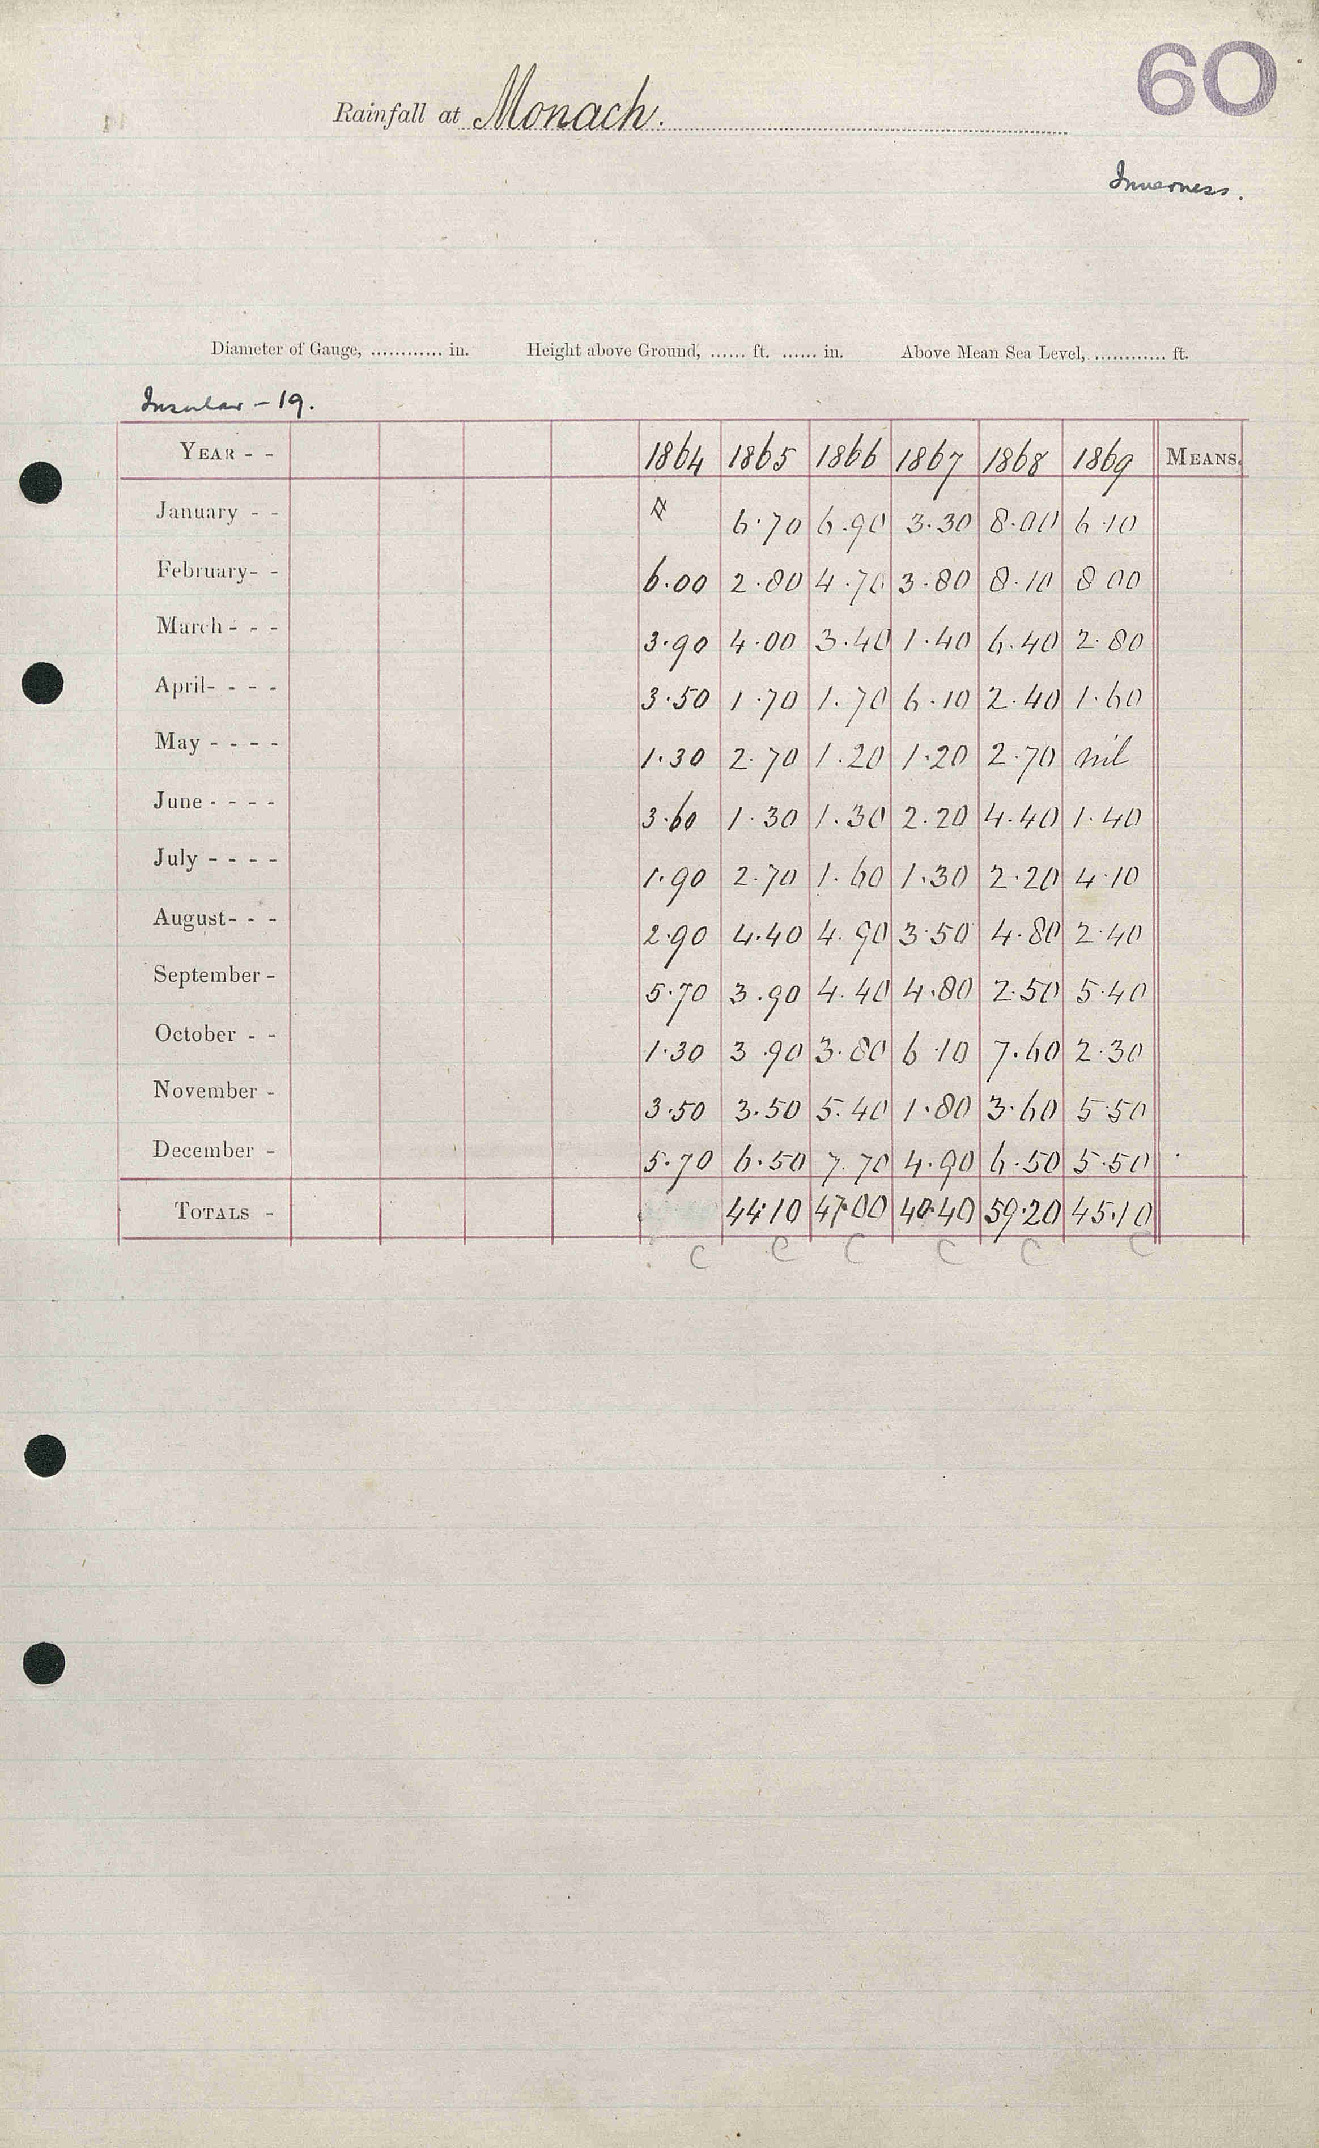 60
Rainfall at Monach.
Inverness.
Diameter of Gauge, ............ in. Height above Ground, ...... ft. ...... in. Above Mean Sea Level, ............ ft.
Insular - 19.
YEAR - - 1864 1865 1866 1867 1868 1869 MEANS.
January - - 6.70 6.90 3.30 8.00 6.10
February- - 6.00 2.80 4.70 3.80 8.10 8.00
March - - - 3.90 4.00 3.40 1.40 6.40 2.80
April- - - - 3.50 1.70 1.70 6.10 2.40 1.60
May - - - - 1.30 2.70 1.20 1.20 2.70 nil
June - - - - 3.60 1.30 1.30 2.20 4.40 1.40
July - - - - 1.90 2.70 1.60 1.30 2.20 4.10
August- - - 2.90 4.40 4.90 3.50 4.80 2.40
September - 5.70 3.90 4.40 4.80 2.50 5.40
October - - 1.30 3.90 3.80 6.10 7.60 2.30
November - 3.50 3.50 5.40 1.80 3.60 5.50
December - 5.70 6.50 7.70 4.90 6.50 5.50
TOTALS - 44.10 47.00 40.40 59.20 45.10
C C C C C C